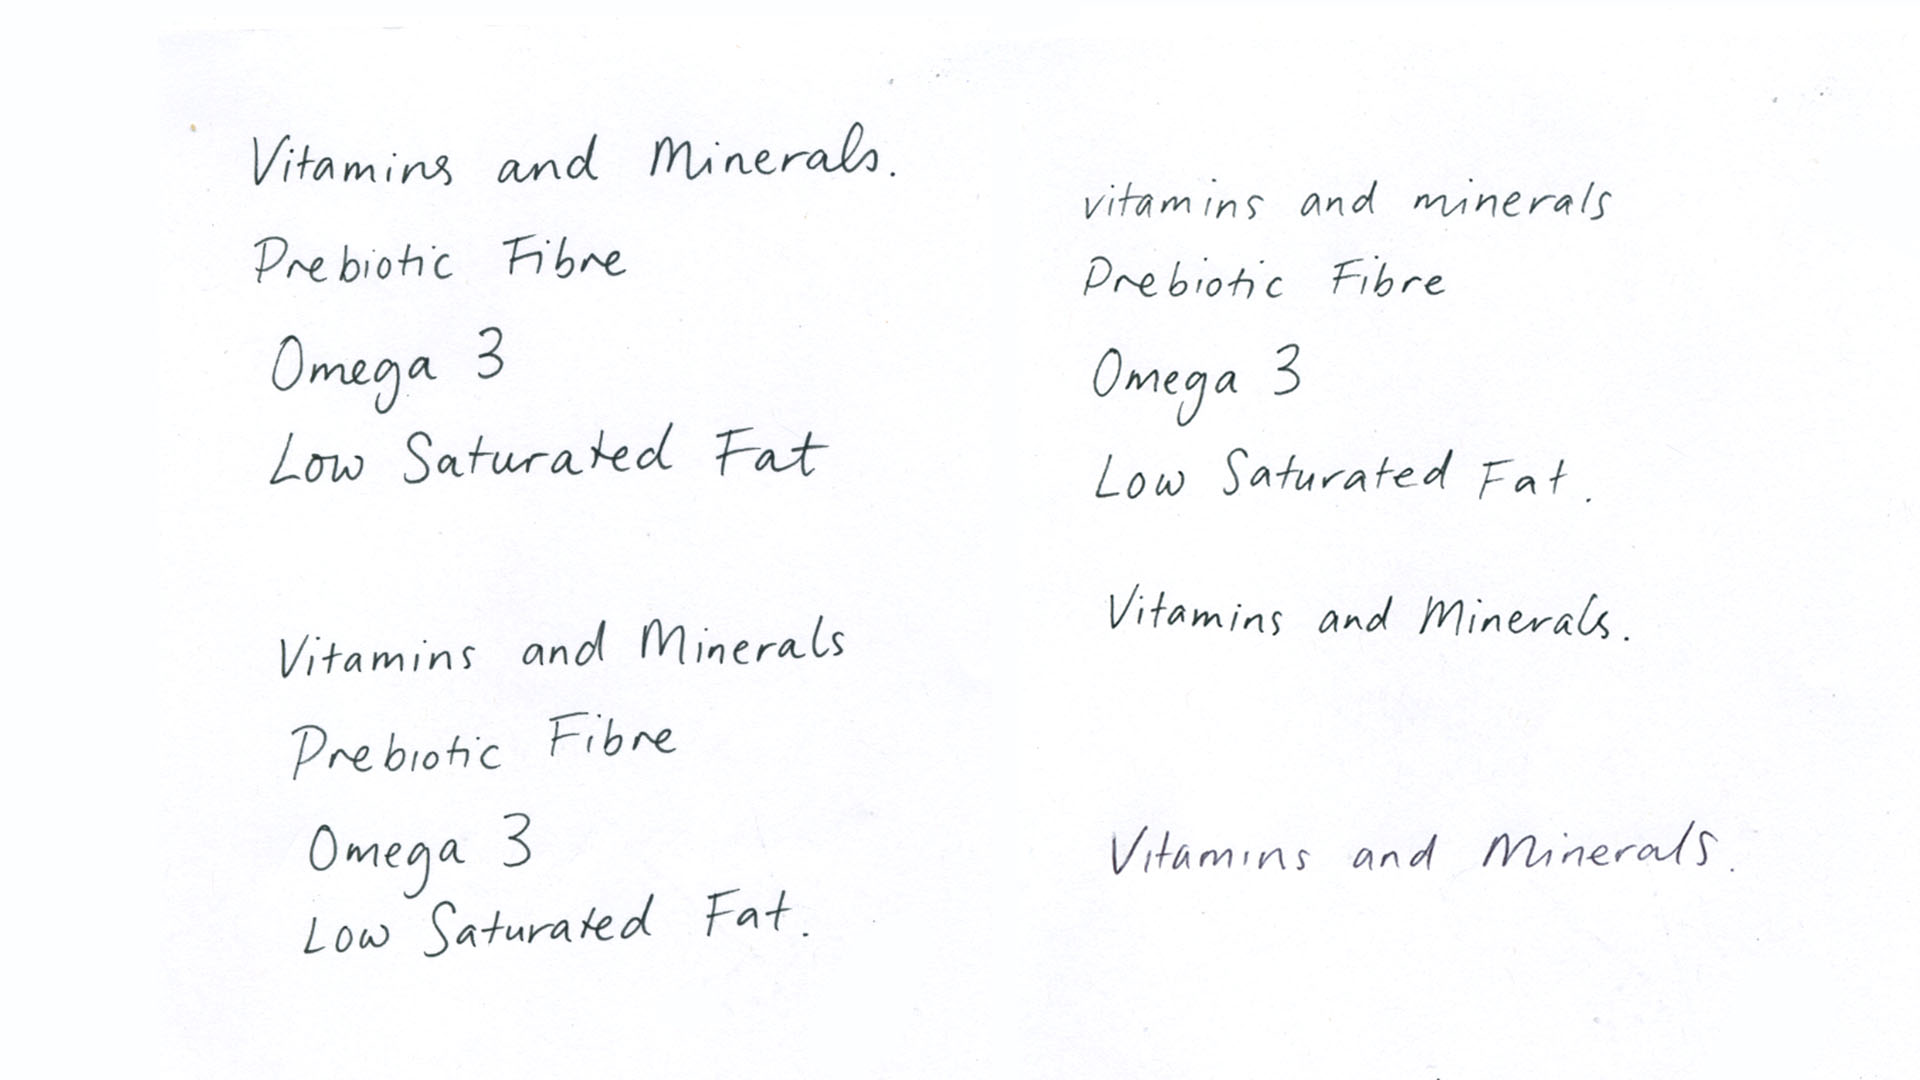 Vitamins and Minerals.
Prebiotic Fibre
Omega 3
Low Saturated Fat
Vitamins and Minerals
Prebiotic Fibre
Omega 3
Low Saturated Fat.
vitamins and minerals
Prebiotic Fibre
Omega 3
Low Saturated Fat.
Vitamins and Minerals.
Vitamins and Minerals.